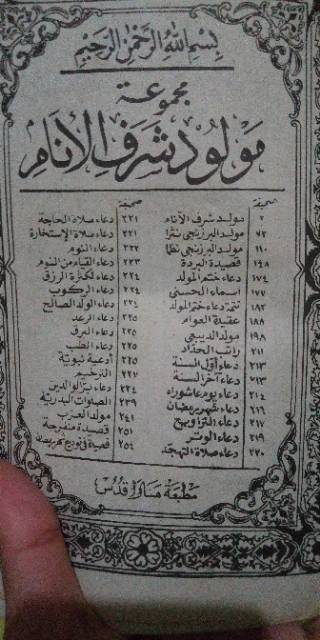 بسم الله الرحمن الرحيم
مجموعة
مولود شرف الأنام
صحيفة
٢ مولد شرف الأنام
٧٢ مولد البرزنجي نثرا
١١٠ مولد البرزنجي نظما
١٤٨ قصيدة البردة
١٧٤ دعاء ختم المولد
١٧٧ اسماء الحسنى
١٨٢ تتمة دعاء ختم المولد
١٨٨ عقيدة العوام
مولد الديبعي
٢١١ راتب الحداد
٢١٣ دعاء أول السنة
٢١٣ دعاء آخر السنة
٢١٤ دعاء يوم عاشوراء
٢١٦ دعاء شهر رمضان
٢١٧ دعاء التراويح
٢١٩ دعاء الوتر
٢٢٠ دعاء صلاة التهجد
صحيفة
٢٢١ دعاء صلاة الحاجة
٢٢١ دعاء صلاة الإستخارة
٢٢٢ دعاء النوم
٢٢٣ دعاء القيام من النوم
٢٢٤ دعاء لكثرة الرزق
٢٢٤ دعاء الركوب
٢٢٤ دعاء الولد الصالح
٢٢٥ دعاء الرعد
٢٢٥ دعاء البرق
٢٢٥ دعاء الطب
٢٢٥ أدعية نبوية
٢٢٧ الترحيم
٢٣٤ دعاء بر الوالدين
٢٣٩ الصلوات البدرية
٢٤١ مولد العزب
٢٥١ قصيدة منفرجة
٢٥٤ قصيدة في توديع شهر رمضان
مطبعة منارا قدس